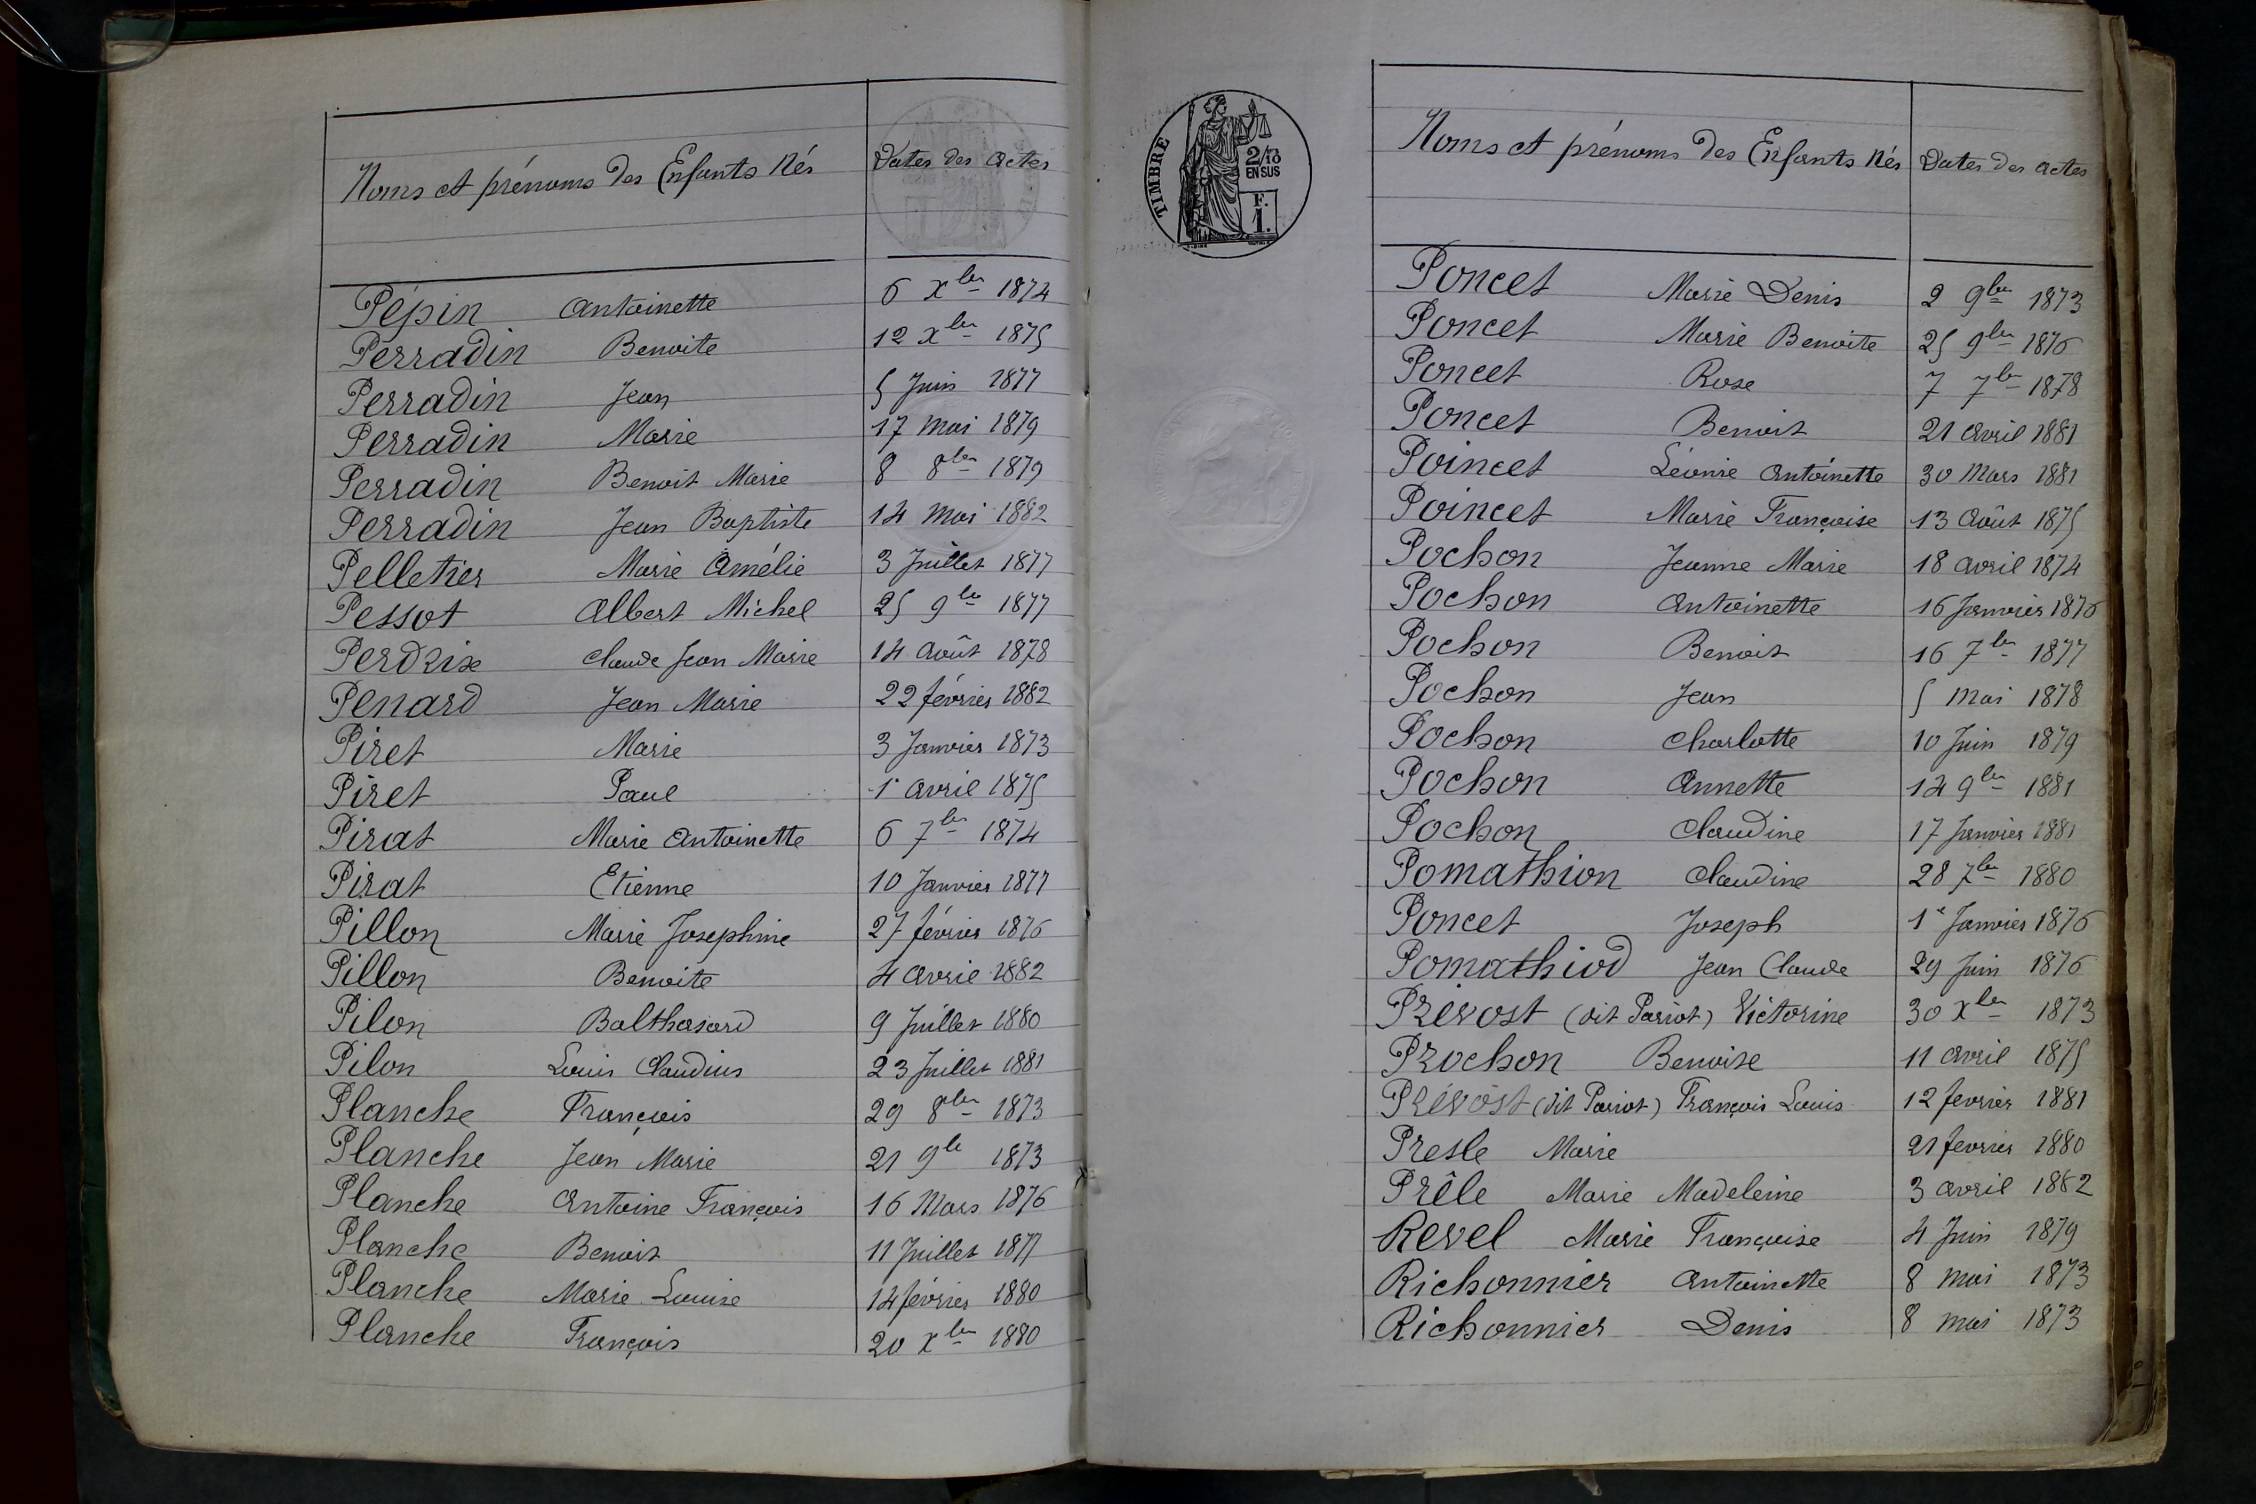 Noms et prénoms des Enfants Nés Dates des actes
Pépin Antoinette 6 Xbre 1874
Perradin Benoite 12 Xbre 1875
Perradin Jean 5 Juin 1877
Perradin Marie 17 Mai 1879
Perradin Benoit Marie 8 8bre 1879
Perradin Jean Baptiste 14 Mai 1882
Pelletier Marie Amélie 3 Juillet 1877
Pessot Albert Michel 25 9bre 1877
Perdrix Claude Jean Marie 14 Août 1878
Penard Jean Marie 22 février 1882
Piret Marie 3 Janvier 1873
Piret Paul 1r avril 1875
Pirat Marie Antoinette 6 7bre 1874
Pirat Etienne 10 Janvier 1877
Pillon Marie Josephine 27 février 1876
Pillon Benoite 4 avril 1882
Pilon Balthasard 9 Juillet 1880
Pilon Louis Claudius 23 Juillet 1881
Planche François 29 8bre 1873
Planche Jean Marie 21 9bre 1873
Planche Antoine François 16 Mars 1876
Planche Benoit 11 Juillet 1877
Planche Marie Louise 14 février 1880
Planche François 20 Xbre 1880
TIMBRE
2/10
EN SUS
F.
1.
Noms et prénoms des Enfants Nés Dates des actes
Poncet Marie Denis 2 9bre 1873
Poncet Marie Benoite 25 9bre 1876
Poncet Rose 7 7bre 1878
Poncet Benoit 21 avril 1881
Poincet Léonie Antoinette 30 Mars 1881
Poincet Marie Françoise 13 Août 1875
Pochon Jeanne Marie 18 avril 1874
Pochon Antoinette 16 Janvier 1876
Pochon Benoit 16 7bre 1877
Pochon Jean 5 Mai 1878
Pochon Charlotte 10 Juin 1879
Pochon Annette 14 9bre 1881
Pochon Claudine 17 Janvier 1881
Pomathion Claudine 28 7bre 1880
Poncet Joseph 1r Janvier 1876
Pomathiod Jean Claude 29 Juin 1876
Prévost (dit Pariot) Victorine 30 Xbre 1873
Prochon Benoise 11 avril 1875
Prévost (dit Pariot) François Louis 12 fevrier 1881
Presle Marie 21 fevrier 1880
Prêle Marie Madeleine 3 avril 1882
Revel Marie Françoise 4 Juin 1879
Richonnier Antoinette 8 mai 1873
Richonnier Denis 8 mai 1873